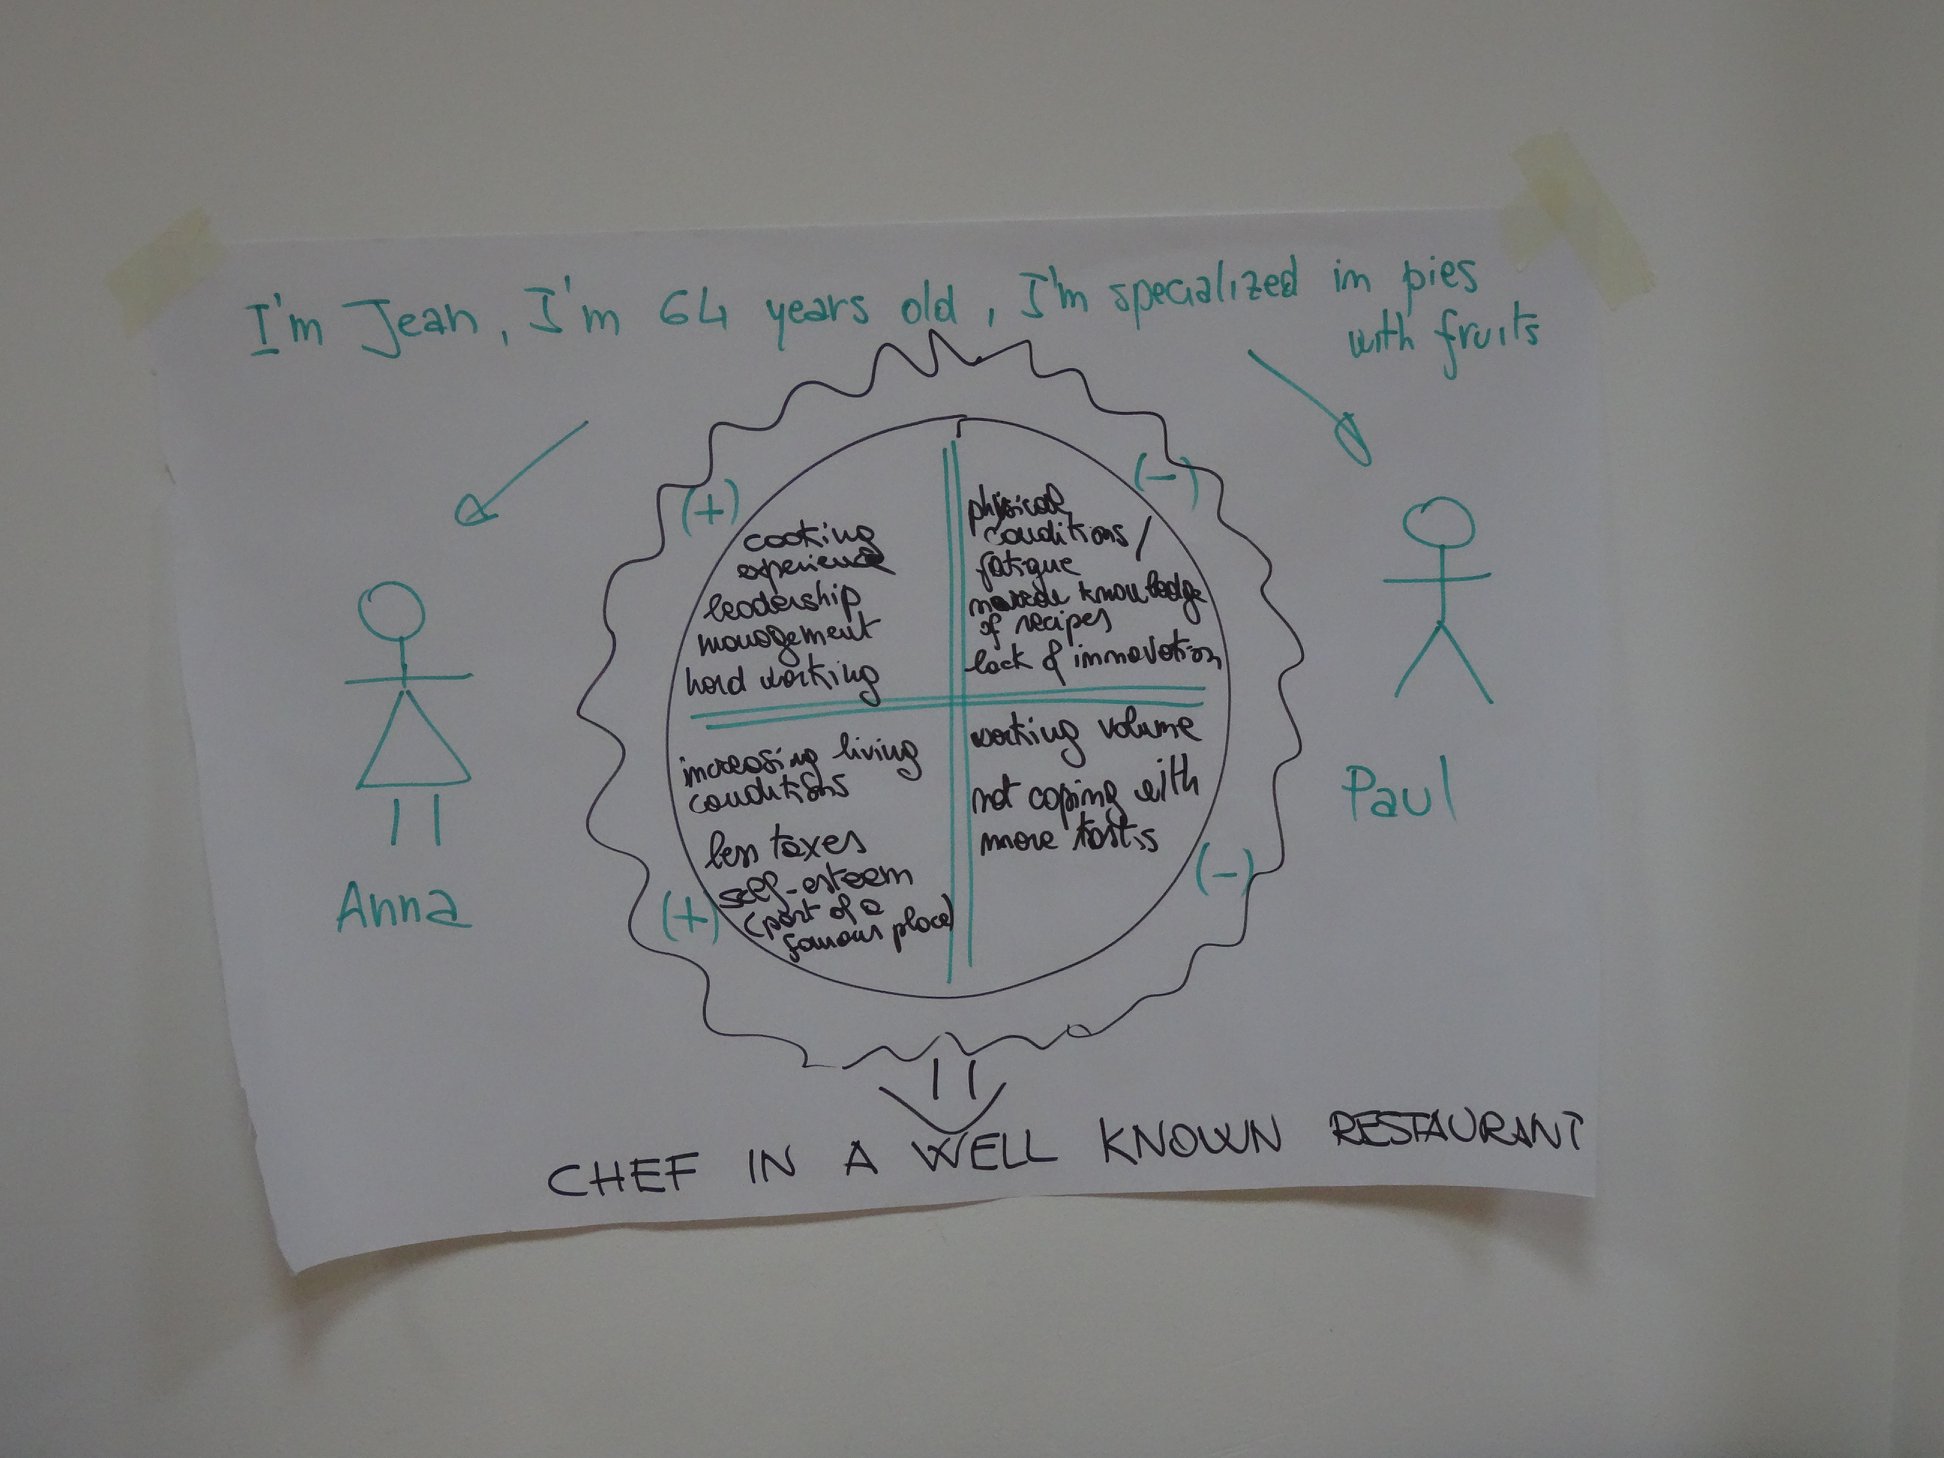 I'm Jean, I'm 64 years old, I'm specialized in pies
with fruits
(+)
cooking
experience
leadership
management
hard working
(-)
physical
conditions/
fatigue
knowledge
of recipes
lack of innovation
increasing living
conditions
less taxes
self-esteem
(part of a
famous place)
(+)
working volume
not coping with
more
(-)
Anna
Paul
CHEF IN A WELL KNOWN RESTAURANT